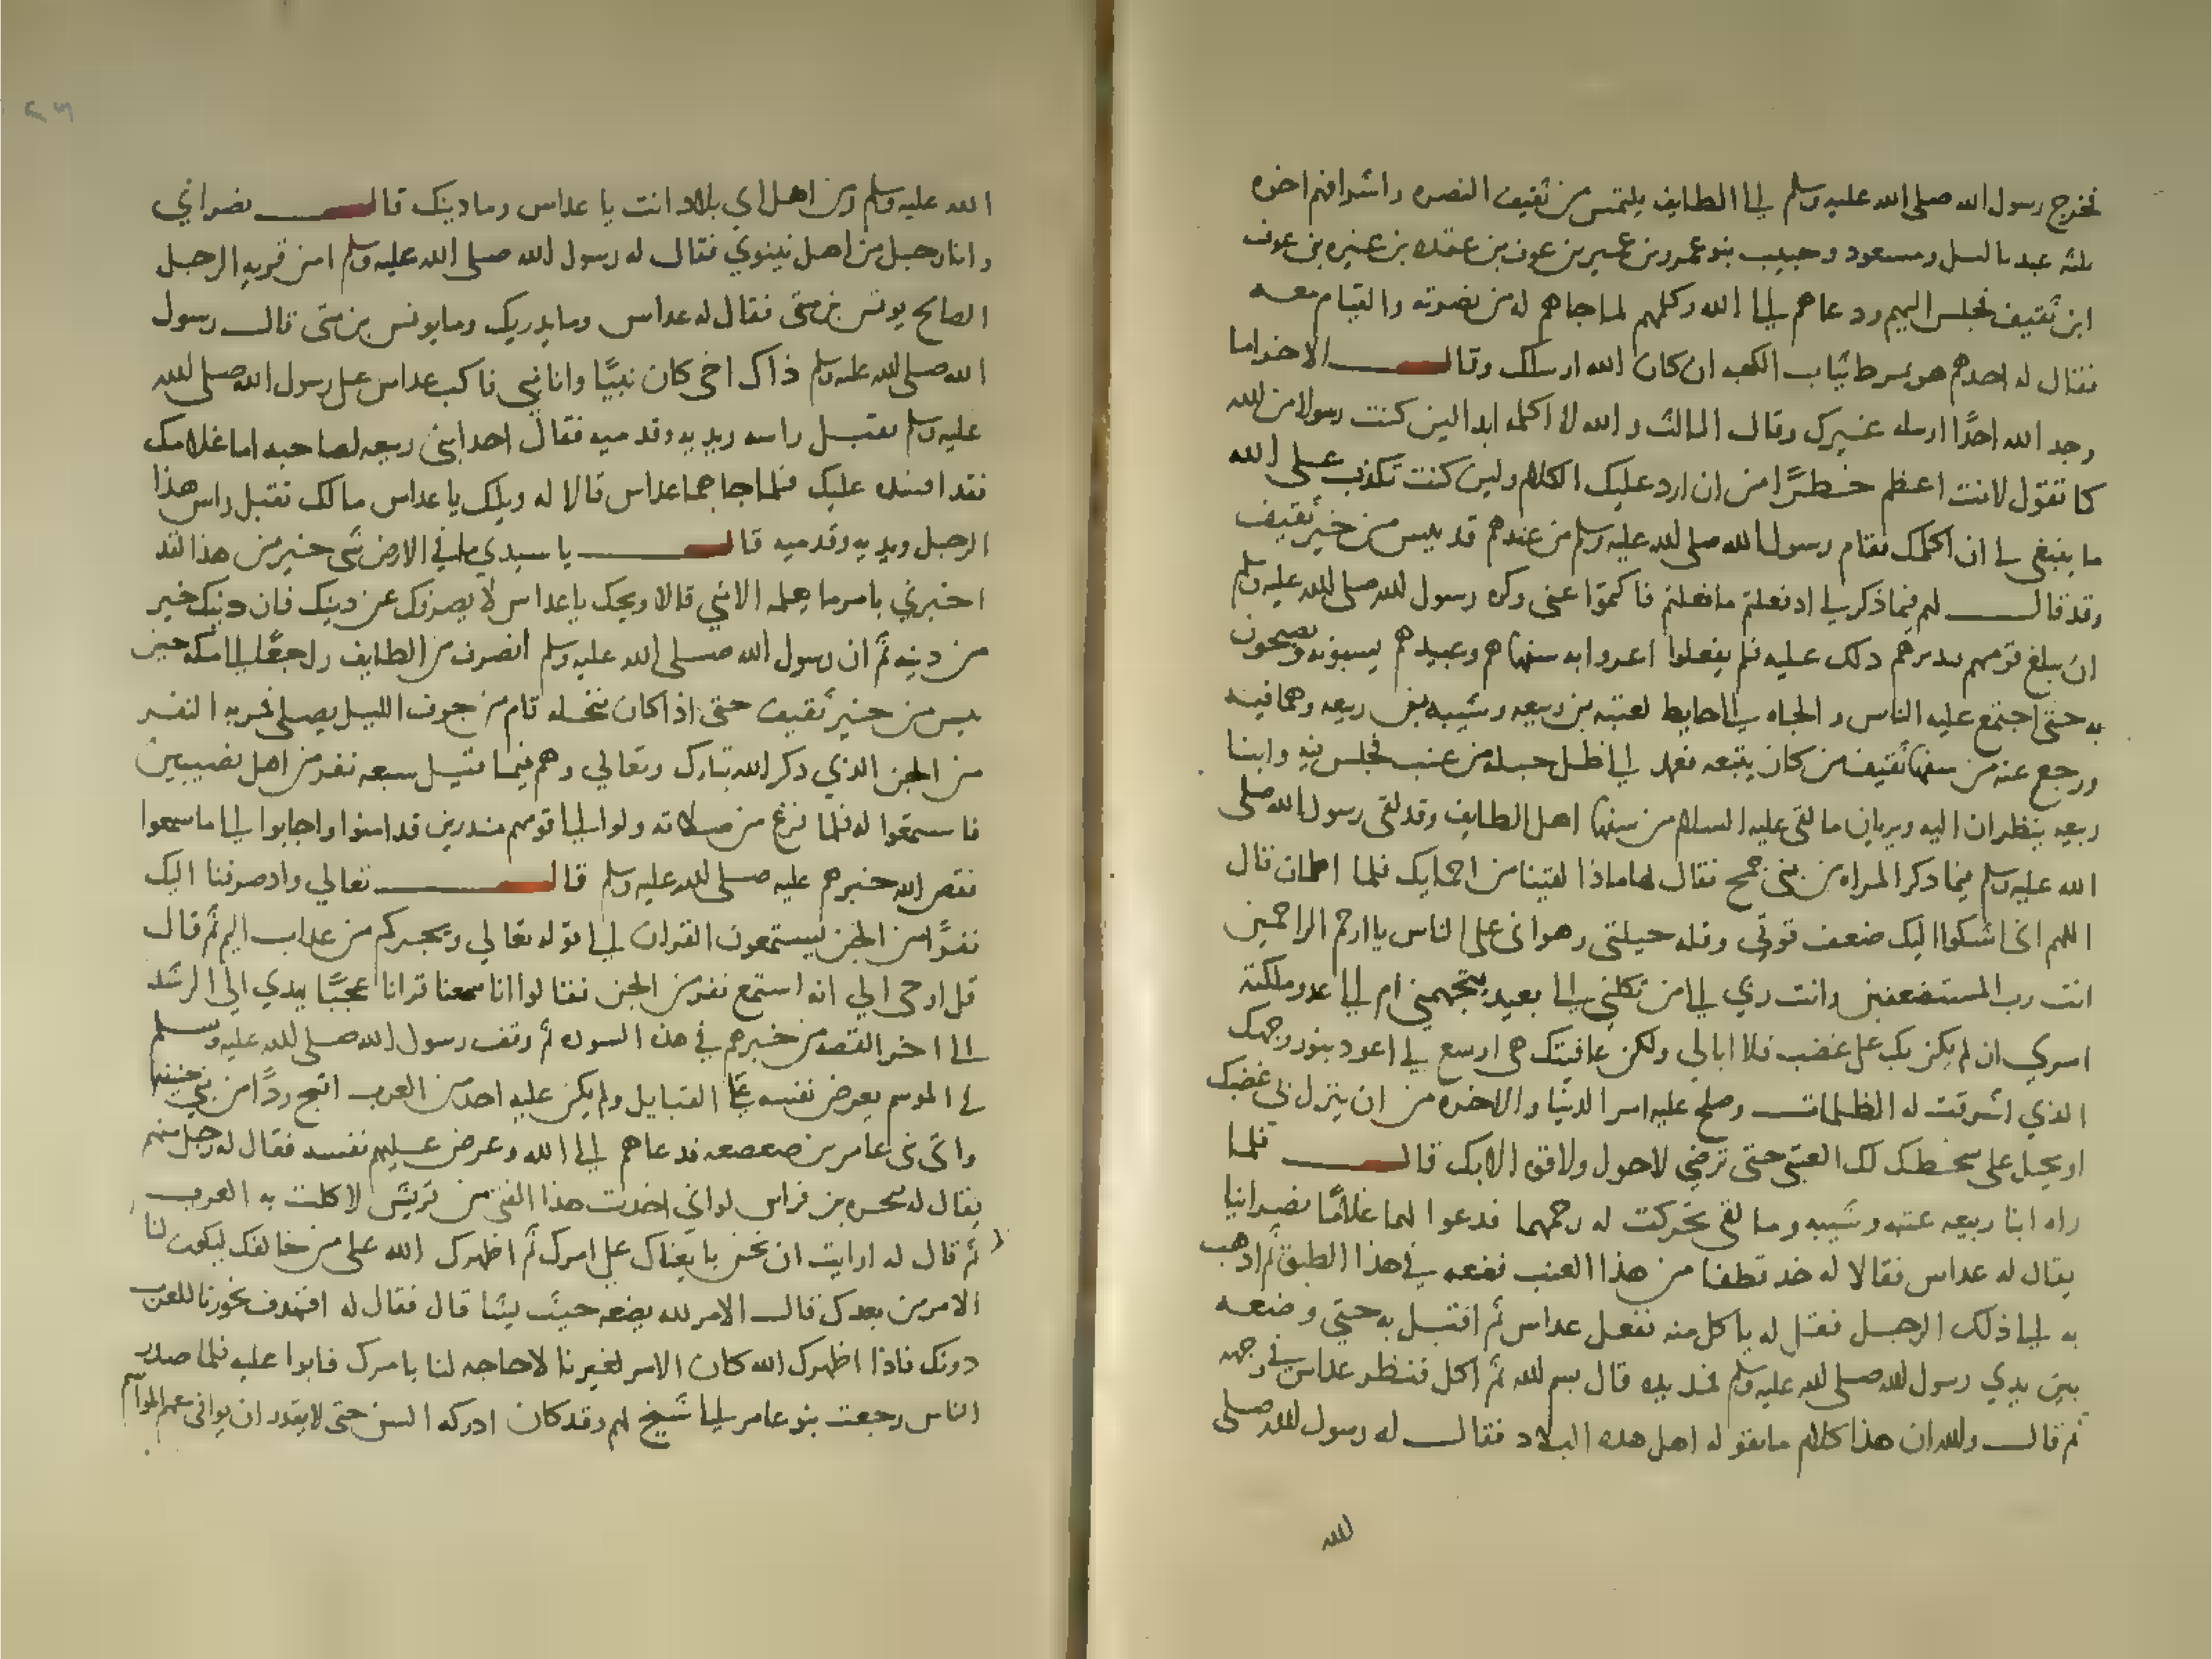 فخرج رسول الله صلى الله عليه وسلم الى الطايف يلتمس من ثقيف النصره واشرافهم اخوه
ثلثه عبد يا ليل ومسعود وحبيب بنو عمرو بن عمير بن عوف بن عقده بن عنيره بن عوف
ابن ثقيف فجلس اليهم ودعاهم الى الله وكلمهم لما جاهم له من نصرته والقيام معه
فقال له احدهم هو يمرط ثياب الكعبه ان كان الله ارسلك وقال الاخر اما
وجد الله احدًا ارسله غيرك وقال الثالث والله لا اكلمك ابدا لين كنت رسولا من الله
كما تقول لانت اعظم خطرًا من ان ارد عليك الكلام ولين كنت تكذب على الله
ما ينبغي لي ان اكلمك فقام رسول الله صلى الله عليه وسلم من عندهم قد ييس من خير ثقيف
وقد قال لهم فيما ذكر لي اذ فعلتم ما فعلتم فاكتموا عني وكره رسول الله صلى الله عليه وسلم
ان يبلغ قومهم فيذيرهم ذلك عليه فلم يفعلوا اغروا به سفهاهم وعبيدهم يسبونه ويصيحون
به حتى اجتمع عليه الناس والجاه الى حايط لعتبه بن ربيعه وشيبه بن ربيعه وهما فيه
ورجع عنه من سفها ثقيف من كان يتبعه فعمد الى ظل حبله من عنب فجلس فيه وابنا
ربيعه ينظران اليه ويريان ما لقي عليه السلام من سفها اهل الطايف وقد لقي رسول الله صلى
الله عليه وسلم فيما ذكر المراه من بني جمح فقال لها ماذا لقينا من احمايك فلما اطمان قال
اللهم اني اشكوا اليك ضعف قوتي وقله حيلتي وهواني على الناس يا ارحم الراحمين
انت رب المستضعفين وانت ربي الى من تكلني الى بعيد يتجهمني ام الى عدو ملكته
امري ان لم يكن بك علي غضب فلا ابالي ولكن عافيتك هي اوسع لي اعوذ بنور وجهك
الذي اشرقت له الظلمات وصلح عليه امر الدنيا والاخره من ان ينزل بي غضبك
او يحل علي سخطك لك العتبى حتى ترضى لا حول ولا قوه الا بك قال فلما
راه ابنا ربيعه عتبه وشيبه وما لقي تحركت له رحمهما فدعوا لهما غلامًا نصرانيا
يقال له عداس فقالا له خذ قطفا من هذا العنب فضعه في هذا الطبق ثم اذهب
به الى ذلك الرجل فقل له ياكل منه ففعل عداس ثم اقبل به حتى وضعه
بين يدي رسول الله صلى الله عليه وسلم فمد يده قال بسم الله ثم اكل فنظر عداس في وجهه
ثم قال والله ان هذا كلام ما يقوله اهل هذه البلاد فقال له رسول الله صلى
الله
٢٦
الله عليه وسلم ومن اهل اي بلاد انت يا عداس وما دينك قال نصراني
وانا رجل من اهل نينوي فقال له رسول الله صلى الله عليه وسلم امن قريه الرجل
الصالح يونس بن متى فقال له عداس وما يدريك وما يونس بن متى قال رسول
الله صلى الله عليه وسلم ذاك اخي كان نبيًا وانا نبي فاكب عداس على رسول الله صلى الله
عليه وسلم يقبل راسه ويديه وقدميه فقال احد ابني ربيعه لصاحبه اما غلامك
فقد افسده عليك فلما جاهما عداس قالا له ويلك يا عداس مالك تقبل راس هذا
الرجل ويديه وقدميه قال يا سيدي ما في الارض شي خير من هذا لقد
اخبرني بامر ما يعلمه الا نبي قالا ويحك يا عداس لا يصرفك عن دينك فان دينك خير
من دينه ثم ان رسول الله صلى الله عليه وسلم انصرف من الطايف راجعًا الى مكه حين
ييس من خير ثقيف حتى اذا كان بنخله قام من جوف الليل يصلي فمر به النفر
من الجن الذي ذكر الله تبارك وتعالي وهم فيما قيل سبعه نفر من اهل نصيبين
فاستمعوا له فلما فرغ من صلاته ولوا الى قومهم منذرين قد امنوا واجابوا الى ما سمعوا
فقص الله خبرهم عليه صلى الله عليه وسلم قال تعالي واذ صرفنا اليك
نفرًا من الجن ليستمعون القران الى قوله تعالي ويجركم من عذاب اليم ثم قال
قل اوحي الي انه استمع نفر من الجن فقالوا انا سمعنا قرانا عجبًا يهدي الى الرشد
الى اخر القصه من خبرهم في هذه السوره ثم وقف رسول الله صلى الله عليه وسلم
في الموسم يعرض نفسه على القبايل ولم يكن عليه احد من العرب اقبح ردًا من بني حنيفه
واتى بني عامر بن صعصعه فدعاهم الى الله وعرض عليهم نفسه فقال له رجل منهم
يقال له بيحره بن فراس لو اني اخذت هذا الفتى من قريش لاكلت به العرب
ثم قال له ارايت ان نحن بايعناك على امرك ثم اظهرك الله على من خالفك ايكون لنا
الامر من بعدك قال الامر لله يضعه حيث يشا قال فقال له افتهدف نحورنا للعرب
دونك فاذا اظهرك الله كان الامر لغيرنا لا حاجه لنا بامرك فابوا عليه فلما صدر
الناس رجعت بنو عامر الى شيخ لهم وقد كان ادركه السن حتى لا يقدر ان يوافى معهم الموسم